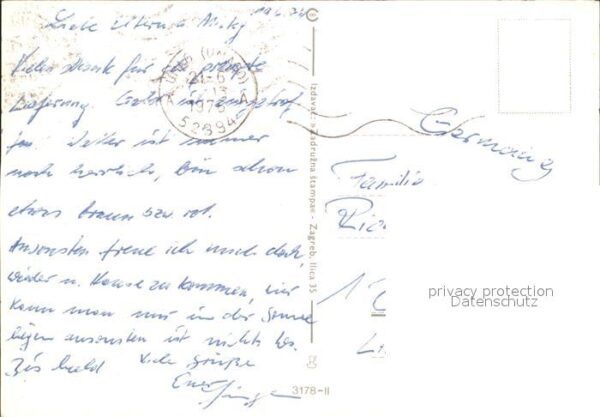 19.6.74
Liebe Eltern u. Micky
Vielen Dank für die prompte
Lieferung.
Wetter ist immer
noch herrlich, bin schon
etwas braun bzw rot.
Ansonsten freue ich mich doch,
wieder n. Hause zu kommen, hier
kann man nur in der Sonne
liegen ansonsten ist nichts los.
Bis bald Viele Grüße
Euer Jürgen
21-6
1974
52394
Izdavač: »Zadružna štampa« - Zagreb, Ilica 35
3178-II
Germany
Familie
1
privacy protection
Datenschutz